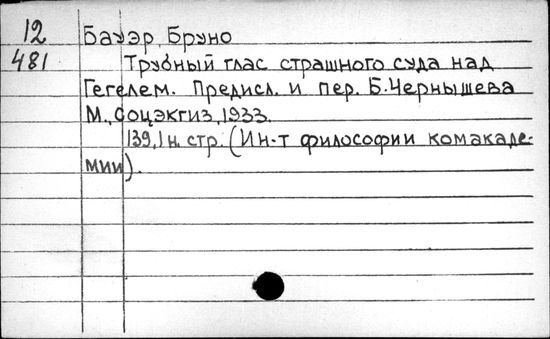 12 Бауэр, Бруно
481 Трубный глас страшного суда над
Гегелем. Предисл. и пер. Б. Чернышева
М., Соцэкгиз, 1933.
139, 1 н. стр. (Ин-т философии комакаде-
мии).